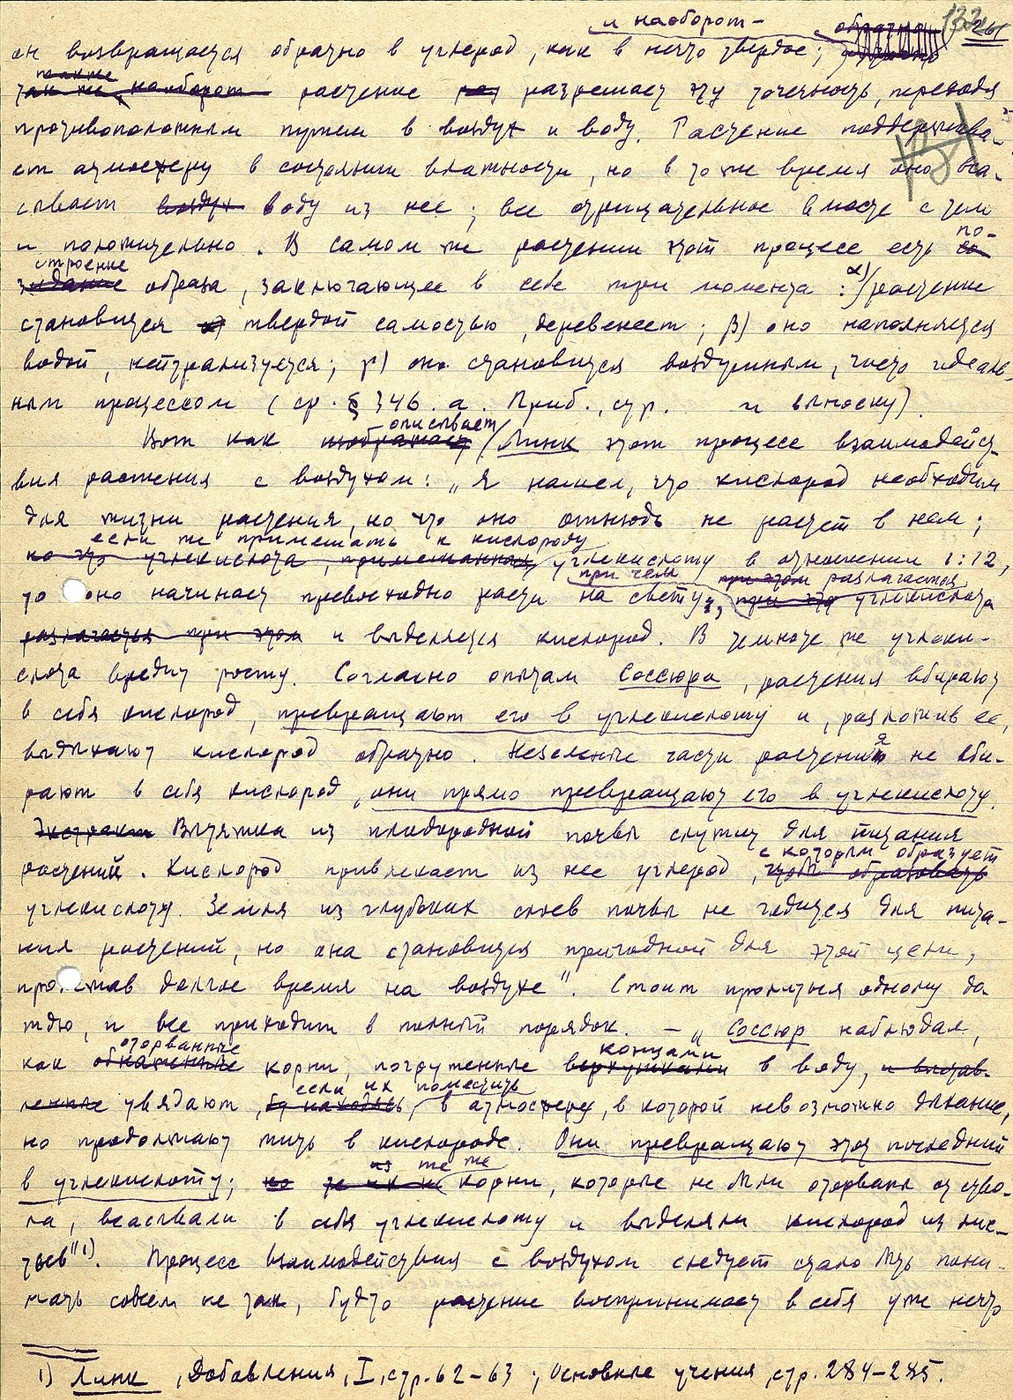 и наоборот –
он возвращается обратно в углерод, как в нечто твердое;
также
так же, наоборот растение раз разрешает эту точечность, переходя
противоположным путем в воздух и воду. Растение поддержива-
ет атмосферу в состоянии влажности, но в то же время оно вса-
сывает воздух воду из нее; все отрицательное вместе с тем
и положительно. В самом же растении этот процесс есть по-
строение
здание образа, заключающее в себе три момента: α) растение
становится твердой самостью, деревенеет; β) оно наполняется
водой, нейтрализуется; γ) оно становится воздушным, чисто идеаль-
ным процессом (ср. § 346.а. Приб., стр. и выноску).
описывает
Вот как изображает Линк этот процесс взаимодейст-
вия растения с воздухом: „Я нашел, что кислород необходим
для жизни растения, но что оно отнюдь не растет в нем;
если же примешать к кислороду
но что углекислота, примешанная углекислоту в отношении 1:12,
при чем при этом разлагается
то оно начинает превосходно расти на свету, при что углекислота
разлагается при этом и выделяется кислород. В темноте же углеки-
слота вредит росту. Согласно опытам Соссюра, растения вбирают
в себя кислород, превращают его в углекислоту и, разложив ее,
выдыхают кислород обратно. Незеленые части растения не вби-
рают в себя кислород, они прямо превращают его в углекислоту.
Экстракт Вытяжка из плодородной почвы служит для питания
с которым образует
растений. Кислород привлекает из нее углерод, чтобы образовать
углекислоту. Земля из глубоких слоев почвы не годится для пита-
ния растений, но она становится пригодной для этой цели,
пролежав долгое время на воздухе". Стоит пролиться одному до
ждю, и все приходит в полный порядок. – „Соссюр наблюдал,
оторванные концами
как обнаженные корни, погруженные верхушками в воду,
если их поместить
увядают, в атмосферу, в которой невозможно дыхание,
но продолжают жить в кислороде. Они превращают этот последний
из те же
в углекислоту; но те же корни, которые не были оторваны от ство-
ла, всасывали в себя углекислоту и выделяли кислород из лис-
тьев"¹). Процесс взаимодействия с воздухом следует стало быть пони-
мать совсем не так, будто растение воспринимает в себя уже нечто
1) Линк, Добавления, I, стр. 62–63; Основные учения, стр. 284–285.